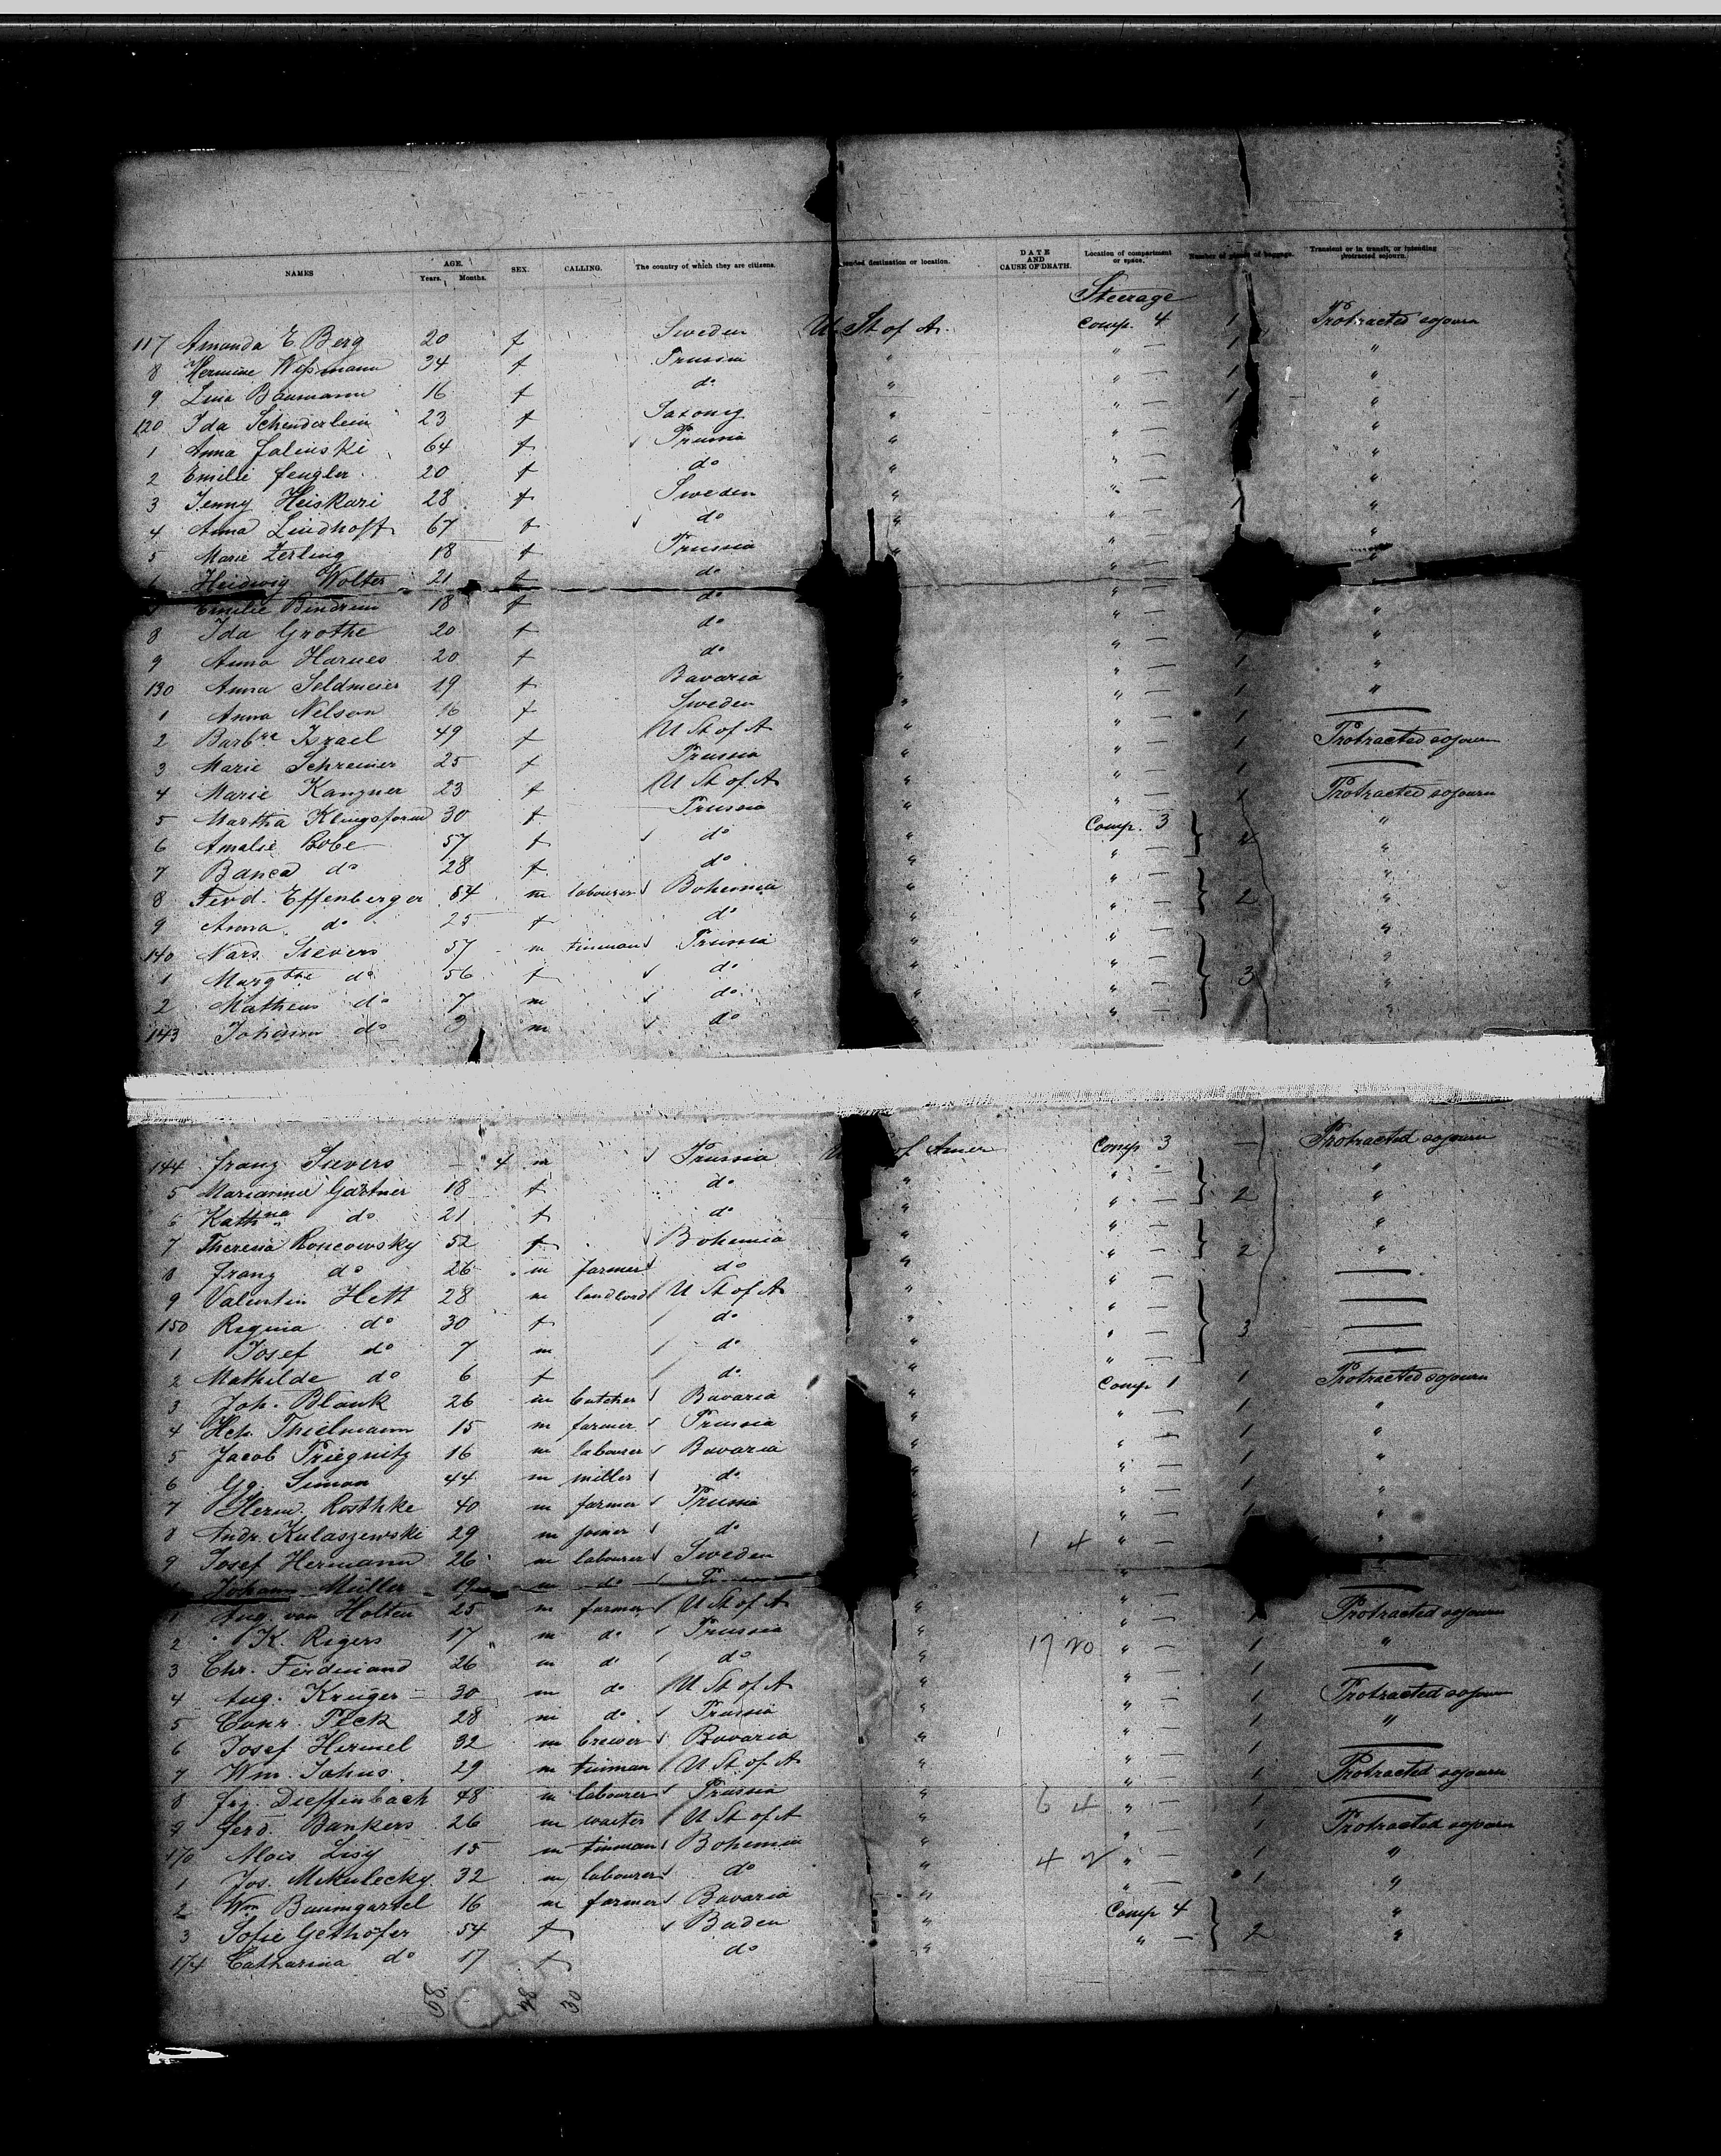 NAMES AGE. Years. Months. SEX. CALLING. The country of which they are citizens. ended destination or location. DATE AND CAUSE OF DEATH. Location of compartment or space. Number of pieces of baggage. Transient or in transit, or intending protracted sojourn.
Steerage
117 Amanda E Berg 20 f Sweden U. St of A. Comp. 4 1 Protracted sojourn
8 Hermine Wißmann 34 f Prussia " " — 1 "
9 Lina Baumann 16 f do " " — 1 "
120 Ida Schenderlein 23 f Saxony " " — 1 "
1 Anna Jalinski 64 f Prussia " " — "
2 Emilie 20 f do " " — "
3 Jenny Heiskari 28 f Sweden " " — "
4 Anna Lindhoff 67 f do " " — 1 "
5 Marie Zerling 18 f Prussia " " — "
Heidwig Wolter 21 f do " —
Emilie Bindrim 18 f do " — "
8 Ida Grothe 20 f do " — 1 "
9 Anna Harnes 20 f do " " — 1 "
130 Anna Seldmeier 19 f Bavaria " " — 1 "
1 Anna Nelson 16 f Sweden " " — 1 —
2 Barbra Israel 49 f U St of A " " — 1 Protracted sojourn
3 Marie Schreiner 25 f Prussia " " — 1 —
4 Marie Kangner 23 f U St of A " " — 1 Protracted sojourn
5 Martha 30 f Prussia " Comp. 3 "
6 Amalie Bobe 57 f do " " — 4 "
7 Banca do 28 f do " " — "
8 Ferd. Effenberger 54 m labourer Bohemia " " — 2 "
9 Anna do 25 f do " " — "
140 Nars. Sievers 57 m tinman Prussia " " — "
1 Margthe do 56 f do " " — 3 "
2 Matheus do 7 m do " " — "
143 Johann do 3 m do "
144 Franz Sievers — 4 m Prussia U of Amer Comp 3 — Protracted sojourn
5 Marianna Gärtner 18 f do " " — 2 "
6 Kathna do 21 f do " " — "
7 Theresia Roncowsky 52 f Bohemia " " — 2 "
8 Franz do 26 m farmer do " " — "
9 Valentin Hett 28 m landlord U St of A " " — —
150 Regina do 30 f do " " — 3 —
1 Josef do 7 m do " " — —
2 Mathilde do 6 f do " " — —
3 Joh. Blank 26 m butcher Bavaria " Comp 1 1 Protracted sojourn
4 Hch. Thielmann 15 m farmer Prussia " " — 1 "
5 Jacob Priegnitz 16 m labourer Bavaria " " — 1 "
6 Gg. Simon 44 m miller do " " — 1 "
7 Herm. Rosthke 40 m farmer Prussia " " — 1 "
8 Andr. Kulaszewski 29 m joiner do 1 4 " — 1 "
9 Josef Hermann 26 m labourer Sweden "
Johann Müller 19 m do " — —
1 Aug. von Holten 25 m farmer U St of A " " — 1 Protracted sojourn
2 K. Rigers 17 m do Prussia " 17 20 " — 1 "
3 Chr. Ferdinand 26 m do do " " — 1 —
4 Aug. Krüger 30 m do U St of A " " — 1 Protracted sojourn
5 Conr. Peck 28 m do Prussia " " — 1 "
6 Josef Hermel 32 m brewer Bavaria " " — 1 —
7 Wm. Johns 29 m tinman U St of A " " — 1 Protracted sojourn
8 Frz. Dieffenbach 48 m labourer Prussia " 6 4 " — 1 —
9 Ferd. Bankers 26 m waiter U St of A " " — 1 Protracted sojourn
170 Alois Lisy 15 m tinman Bohemia " 4 2 " — 1 "
1 Jos. Mikulecky 32 m labourer do " " — 1 "
2 Wm Baumgartel 16 m farmer Bavaria " Comp 4 "
3 Sofie Gethöfer 54 f Baden " " — 2 "
174 Catharina do 17 f do "
58. 28 30